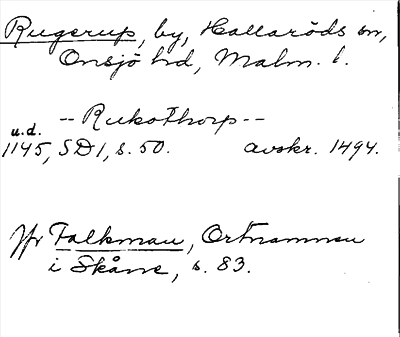 Rugerup, by, Hallaröds sn,
Onsjö hd, Malm. l.
-- Rukathorp --
u.d.
1145, SD1, s. 50. avskr. 1494.
Jfr Falkman, Ortnamnen
i Skåne, s. 83.